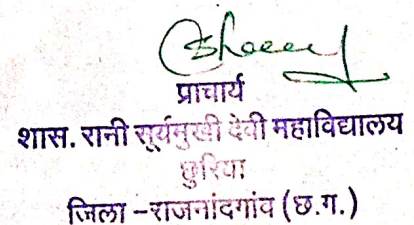 प्राचार्य
शास. रानी सूर्यमुखी देवी महाविद्यालय
छुरिया
जिला -राजनांदगांव (छ.ग.)